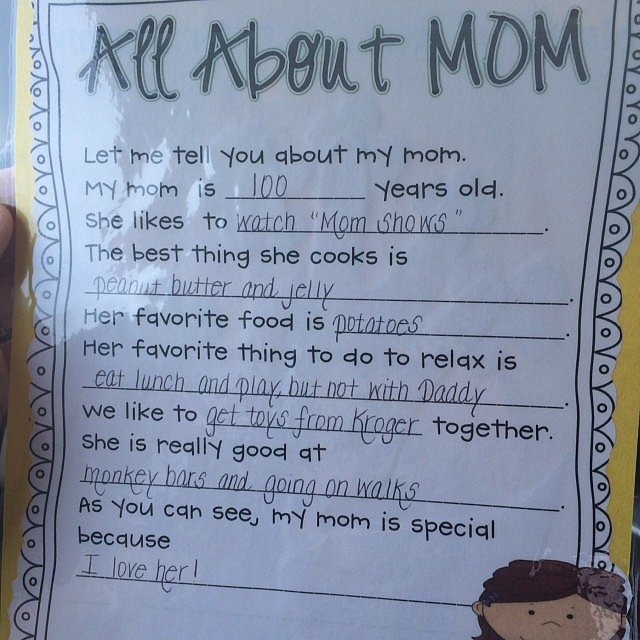 All About MOM
Let me tell you about my mom.
My mom is 100 years old.
She likes to watch "Mom shows".
The best thing she cooks is
peanut butter and jelly.
Her favorite food is potatoes.
Her favorite thing to do to relax is
eat lunch and play, but not with Daddy.
We like to get toys from Kroger together.
She is really good at
monkey bars and going on walks.
As you can see, my mom is special
because
I love her!